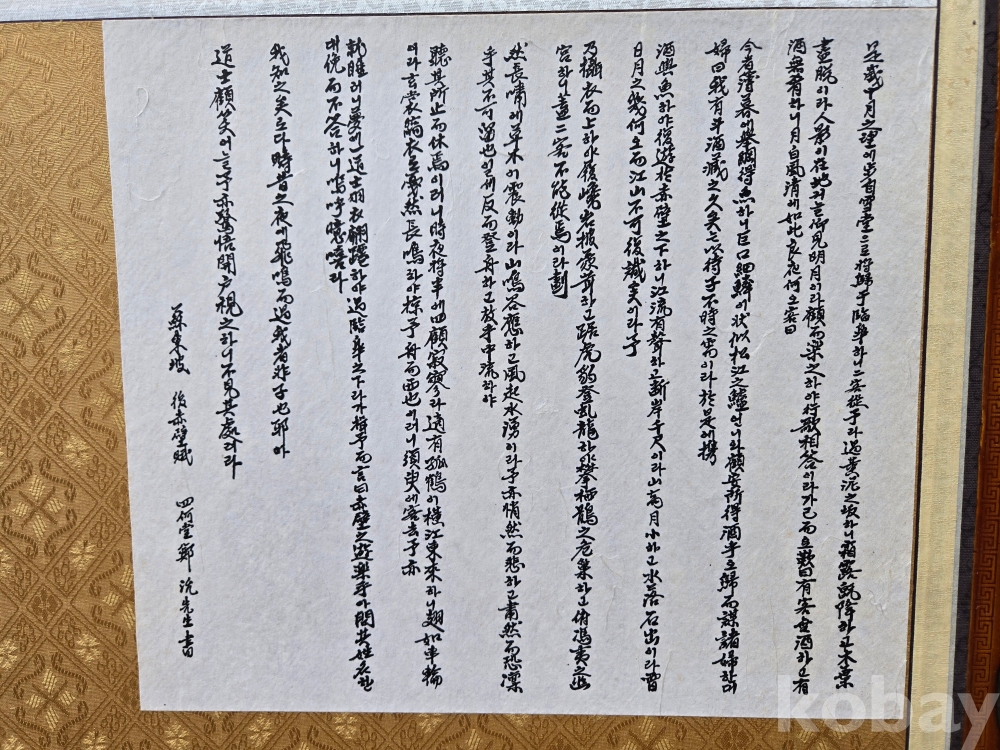 是歲十月之望에步自雪堂으로將歸于臨皐하니二客從予라過黃泥之坂하니霜露旣降하고木葉
盡脫이라人影이在地커늘仰見明月이라顧而樂之하야行歌相答이라가已而오歎曰有客無酒하고有
酒無肴하니月白風淸에如此良夜何오客曰
今者薄暮에擧網得魚하니巨口細鱗이狀似松江之鱸언니와顧安所得酒乎오歸而謀諸婦한대
婦曰我有斗酒藏之久矣로以待子不時之需이라於是에携
酒與魚하야復遊於赤壁之下하니江流有聲하고斷岸千尺이라山高月小하고水落石出이라曾
日月之幾何오而江山不可復識矣이라予
乃攝衣而上하야履巉岩披蒙茸하고踞虎豹登虬龍하야攀栖鶻之危巢하고俯馮夷之幽
宮하니蓋二客不能從焉이라劃
然長嘯에草木이震動이라山鳴谷應하고風起水湧이라予亦悄然而悲하고肅然而恐凜
乎其不可留也일세反而登舟하고放乎中流하야
聽其所止而休焉이러니時夜將半에四顧寂寥今라適有孤鶴이橫江東來하니翅如車輪
이라玄裳縞衣로戛然長鳴하야掠予舟而西也이러니須臾에客去予亦
就睡러니夢에一道士羽衣翩躚하야過臨皐之下라가揖予而言曰赤壁之遊樂乎아問其姓名한
대俛而不答하니嗚呼噫嘻라
我知之矣로다疇昔之夜에飛鳴而過我者非子也耶아
道士顧笑어늘予亦驚悟開戶視之하니不見其處러라
蘇東坡 後赤壁賦 四何堂 鄭沇先生書
kobay